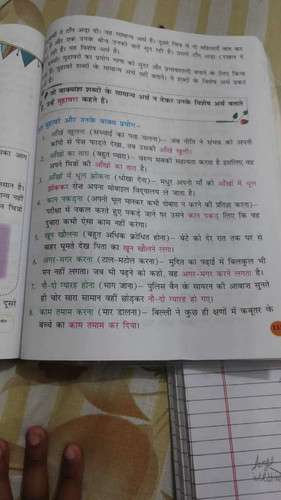 ने टाँग अड़ा दी। यह सामान्य अर्थ है। दूसरे चित्र में दो महिलाएँ बात कर
और एक उनके बीच उनकी बातें सुन रही है।
है। यह विशेष अर्थ है।
मुहावरों का प्रयोग भाषा को सुंदर और प्रभावशाली बनाने के लिए किया
मुहावरे शब्दों के सामान्य अर्थ नहीं बताते। ये शब्दों के विशेष अर्थ प्रकट
जो वाक्यांश शब्दों के सामान्य अर्थ न देकर उनके विशेष अर्थ बताते
उन्हें मुहावरा कहते हैं।
मुहावरे और उनके वाक्य प्रयोग–
आँखें खुलना (सच्चाई का पता चलना)– जब नीति ने संभव को अपनी
कॉपी से पेज फाड़ते देखा, तब उसकी आँखें खुलीं।
आँखों का तारा (बहुत प्यारा)– वरुण सबकी सहायता करता है इसलिए वह
अपने मित्रों की आँखों का तारा है।
आँखों में धूल झोंकना (धोखा देना)– मधुर अपनी माँ की आँखों में धूल
झोंककर रोज़ अपना मोबाइल विद्यालय ले जाता है।
4. कान पकड़ना (अपनी भूल मानकर कभी दोबारा न करने की प्रतिज्ञा करना)–
परीक्षा में नकल करते हुए पकड़े जाने पर उसने कान पकड़ लिए कि वह
दुबारा कभी ऐसा काम नहीं करेगा।
5. खून खौलना (बहुत अधिक क्रोधित होना)– बेटे को देर रात तक घर से
बाहर घूमते देख पिता का खून खौलने लगा।
6. अगर-मगर करना (टाल-मटोल करना)– मुदित का पढ़ाई में बिलकुल भी
मन नहीं लगता। जब भी पढ़ने को कहो, वह अगर-मगर करने लगता है।
7. नौ-दो ग्यारह होना (भाग जाना)– पुलिस वैन के सायरन की आवाज़ सुनते
ही चोर सारा सामान वहीं छोड़कर नौ-दो ग्यारह हो गए।
8. काम तमाम करना (मार डालना)– बिल्ली ने कुछ ही क्षणों में कबूतर के
बच्चे का काम तमाम कर दिया।
दूसरे